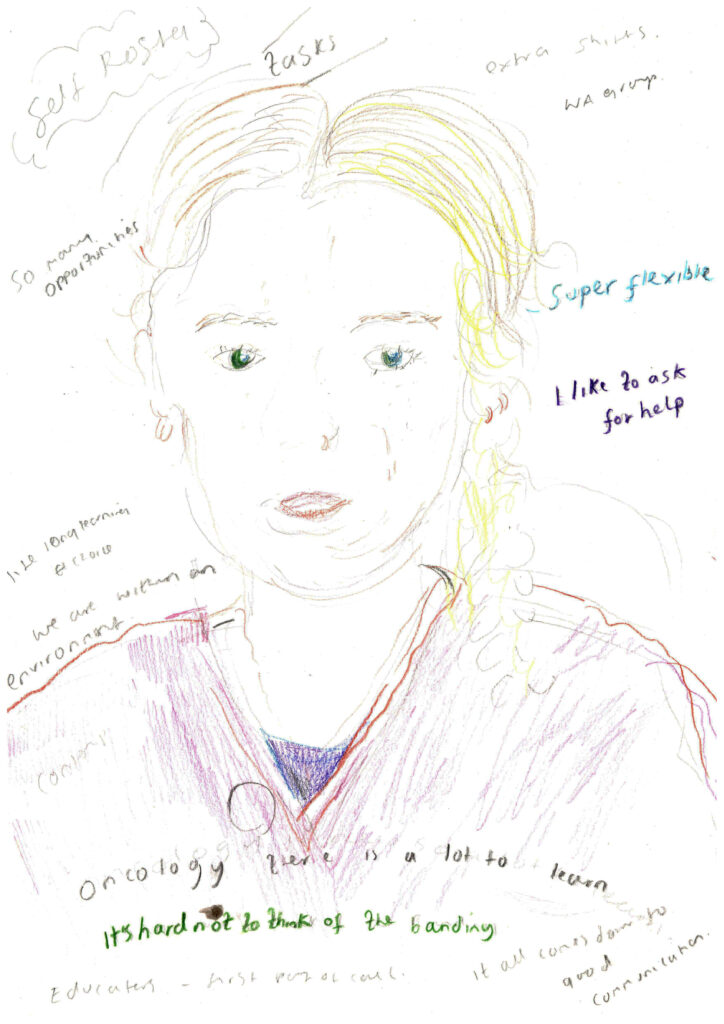 Self Roster
tasks
extra shifts.
WA group.
So many
opportunities
- Super flexible
I like to ask
for help
life long learning
we are within an
environment
content
Oncology there is a lot to learn
It's hard not to think of the banding
Educators - first port of call.
it all comes down to
good
communication.